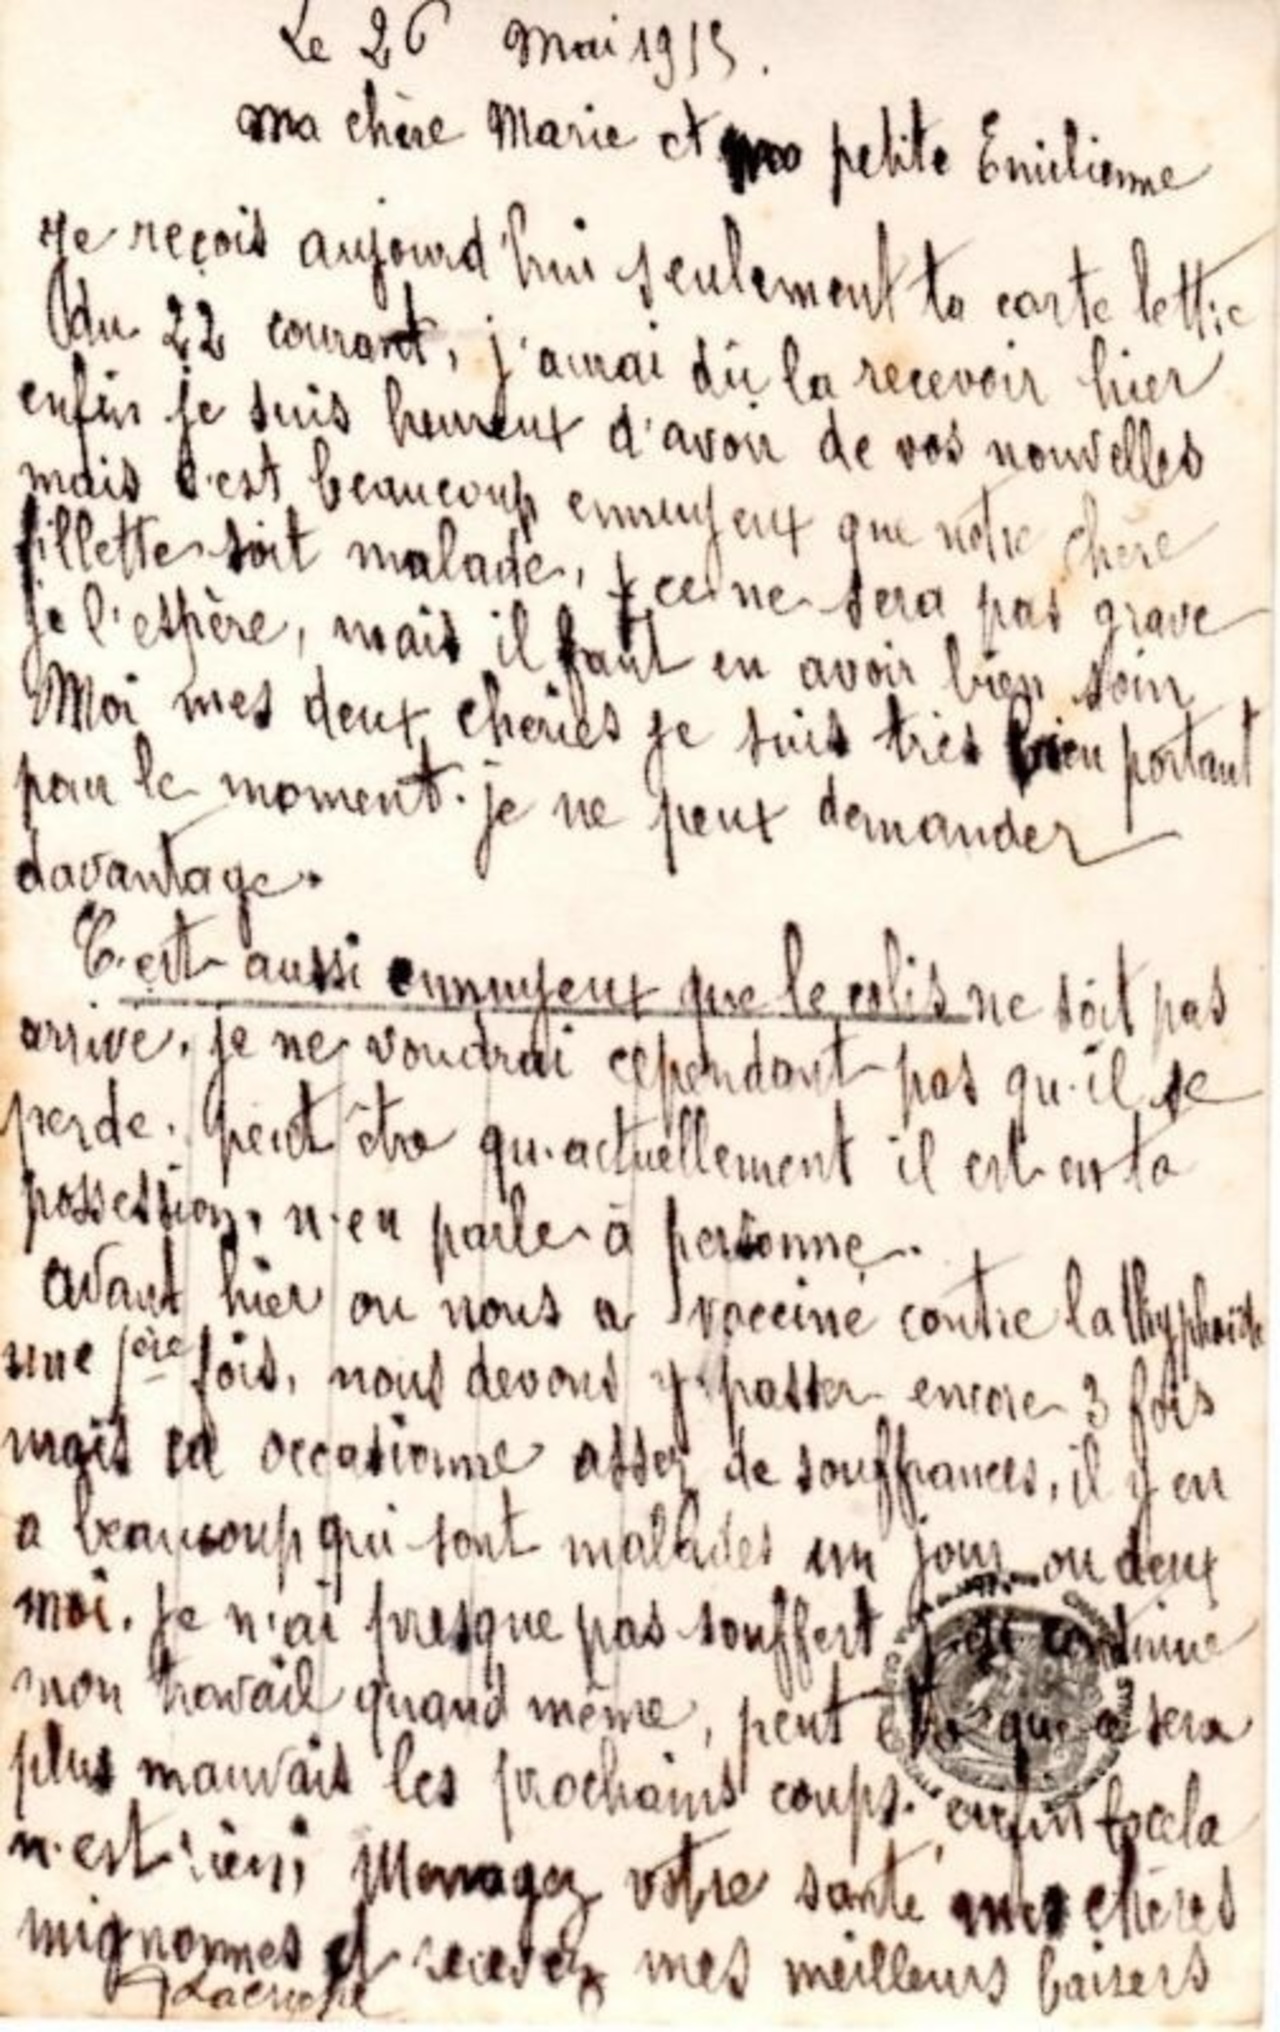 Le 26 Mai 1915.
Ma chère Marie et ma petite Emilienne
Je reçois aujourd'hui seulement ta carte lettre
du 22 courant, j'aurai dû la recevoir hier
enfin je suis heureux d'avoir de vos nouvelles
mais c'est beaucoup ennuyeux que notre chère
fillette soit malade, ce ne sera pas grave
je l'espère, mais il faut en avoir bien soin
Moi mes deux chéries je suis très bien portant
pour le moment. je ne peux demander
davantage.
C'est aussi ennuyeux que le colis ne soit pas
arrivé. je ne voudrai cependant pas qu'il se
perde. peut être qu'actuellement il est en ta
possession. n'en parle à personne.
Avant hier on nous a vacciné contre la thyphoïde
une 1ère fois, nous devons y passer encore 3 fois
mais ça occasionne assez de souffrances, il y en
a beaucoup qui sont malades un jour ou deux
moi. je n'ai presque pas souffert j'ai continué
mon travail quand même, peut être que ce sera
plus mauvais les prochains coups. enfin cela
n'est rien, Menagez votre santé mes chères
mignonnes et recevez mes meilleurs baisers